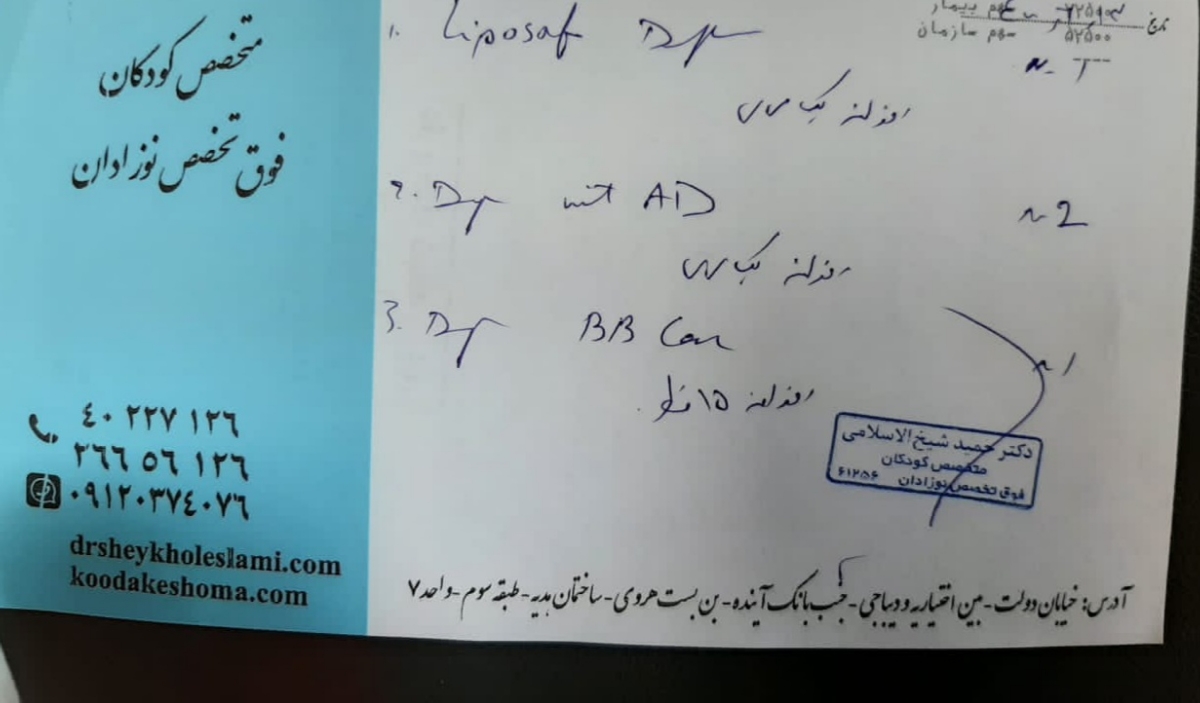 متخصص کودکان
فوق تخصص نوزادان
٤٠ ٢٢٧ ١٢٦
٢٦٦ ٥٦ ١٢٦
٠٩١٢٠٣٧٤٠٧٦
drsheykholeslami.com
koodakeshoma.com
تاریخ
سهم بیمار
۵۲۵۰۰ سهم سازمان
1. Liposaf Drop
روزانه یک سی سی
2. Drop mit AD N2
روزانه یک سی سی
3. Drop BB Care N1
روزانه ۱۵ قطره
دکتر حمید شیخ الاسلامی
متخصص کودکان
فوق تخصص نوزادان ۶۱۲۵۶
آدرس: خیابان دولت - بین اختیاریه و دیباجی - جنب بانک آینده - بن بست هروی - ساختمان هدیه - طبقه سوم - واحد ۷